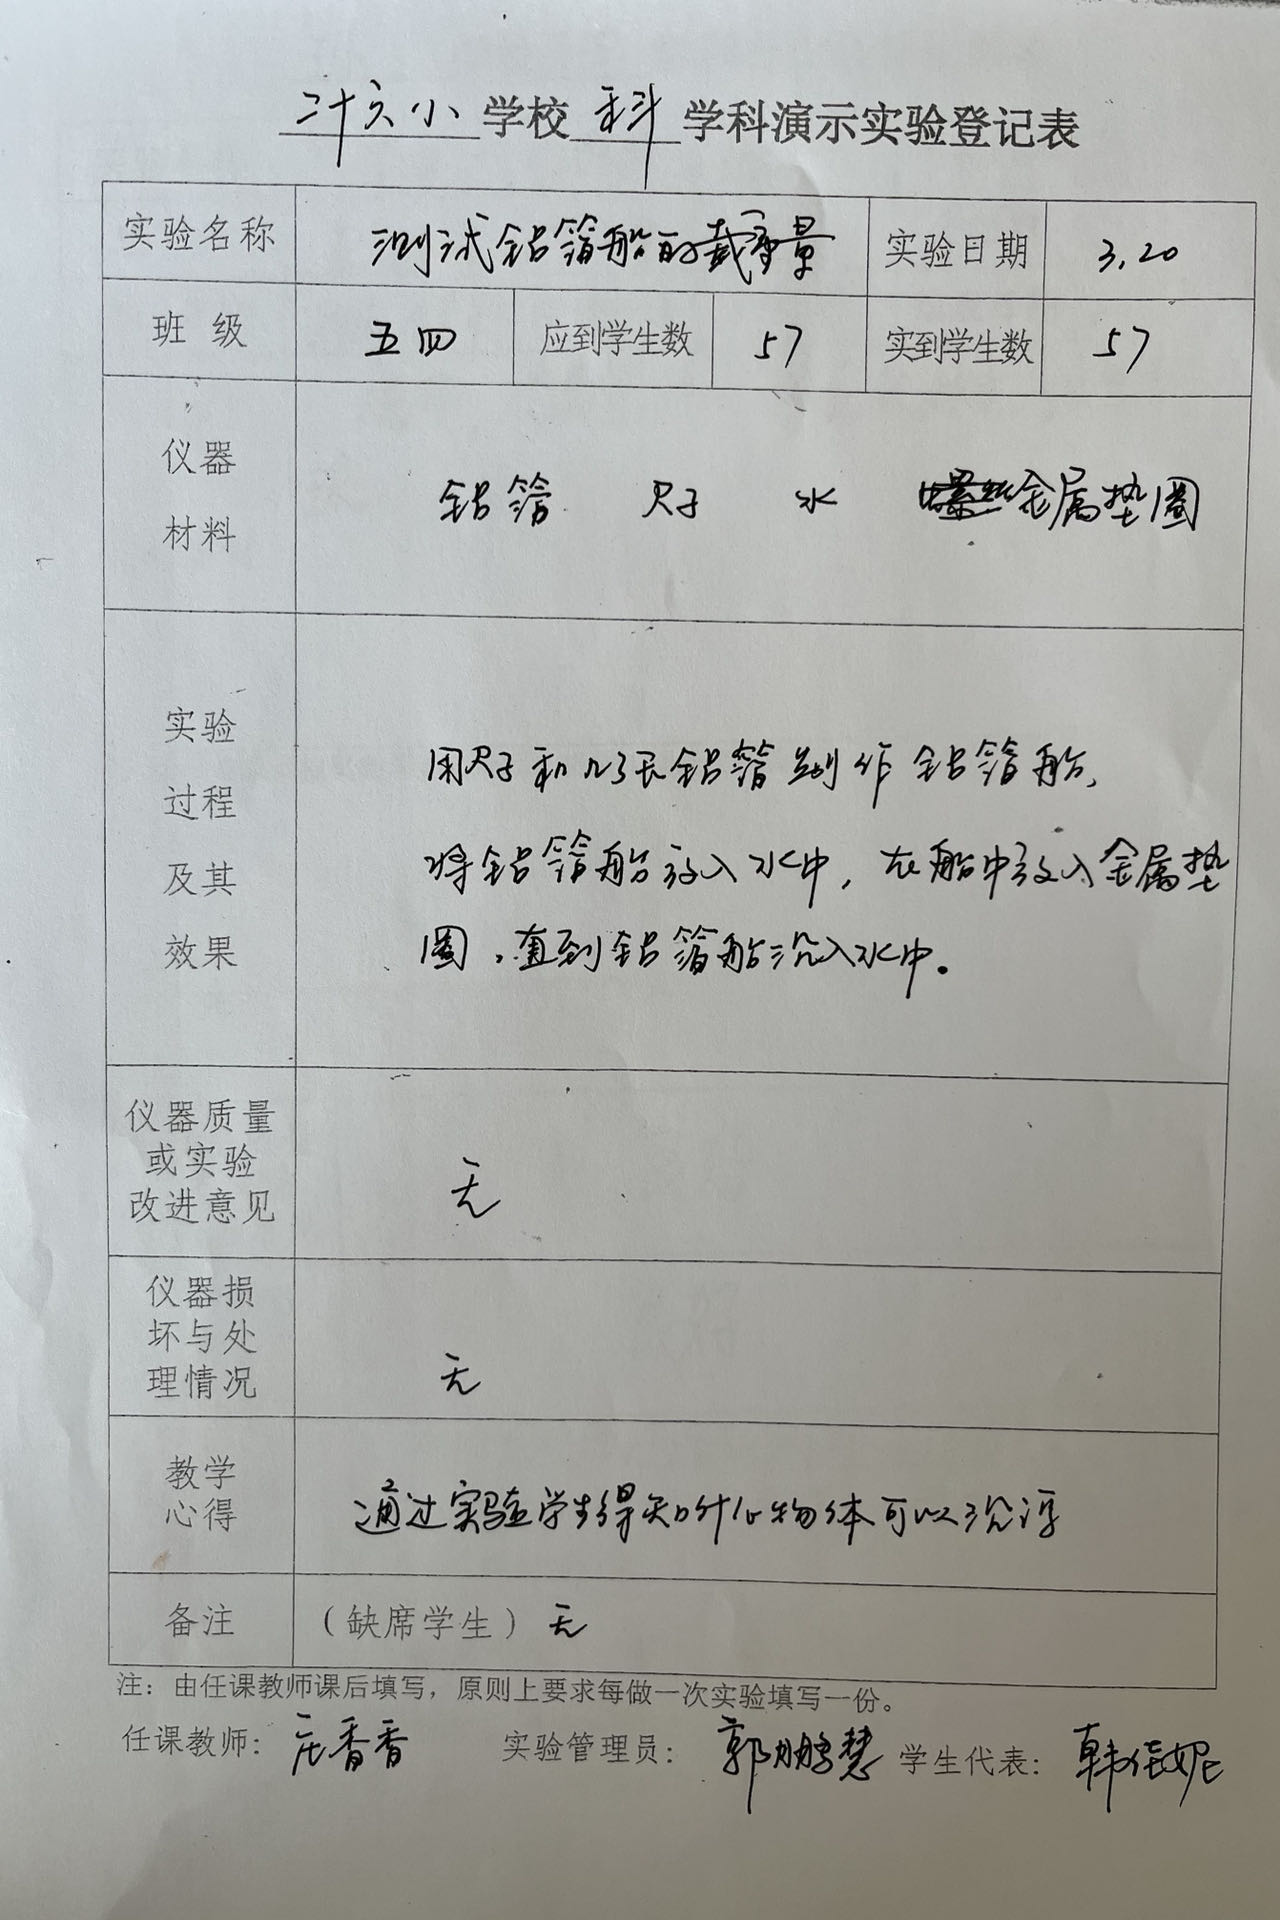 二十六小学校 科 学科演示实验登记表
实验名称 测试铝箔船的载重量 实验日期 3.20
班级 五四 应到学生数 57 实到学生数 57
仪器
材料
铝箔 尺子 水 金属垫圈
实验
过程
及其
效果
用尺子和几张铝箔制作铝箔船,
将铝箔船放入水中,在船中放入金属垫
圈,直到铝箔船沉入水中。
仪器质量
或实验
改进意见
无
仪器损
坏与处
理情况
无
教学
心得
通过实验学生得知什么物体可以沉浮
备注 (缺席学生) 无
注:由任课教师课后填写,原则上要求每做一次实验填写一份。
任课教师: 庄香香 实验管理员: 郭鹏慧 学生代表: 韩佳妮